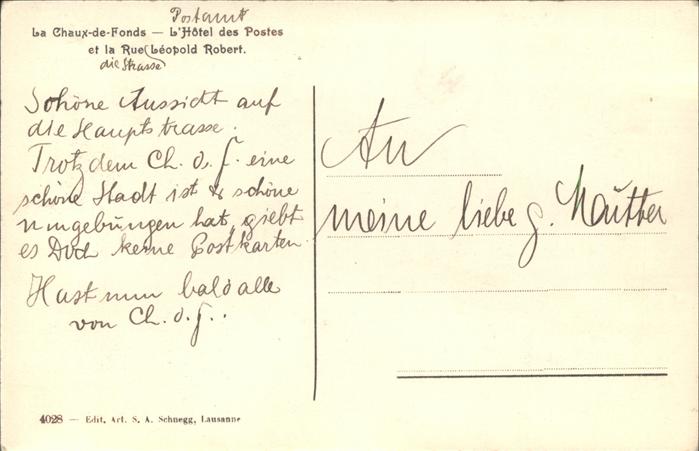 Postamt
La Chaux-de-Fonds — L'Hôtel des Postes
et la Rue Léopold Robert.
die Strasse
Schöne Aussicht auf
die Hauptstrasse.
Trotzdem Ch. d. f. eine
schöne Stadt ist & schöne
Umgebungen hat, giebt
es Doch keine Postkarten.
Hast nun bald alle
von Ch. d. f..
An
meine liebe g. Mutter
4028 — Edit. Art. S. A. Schnegg, Lausanne